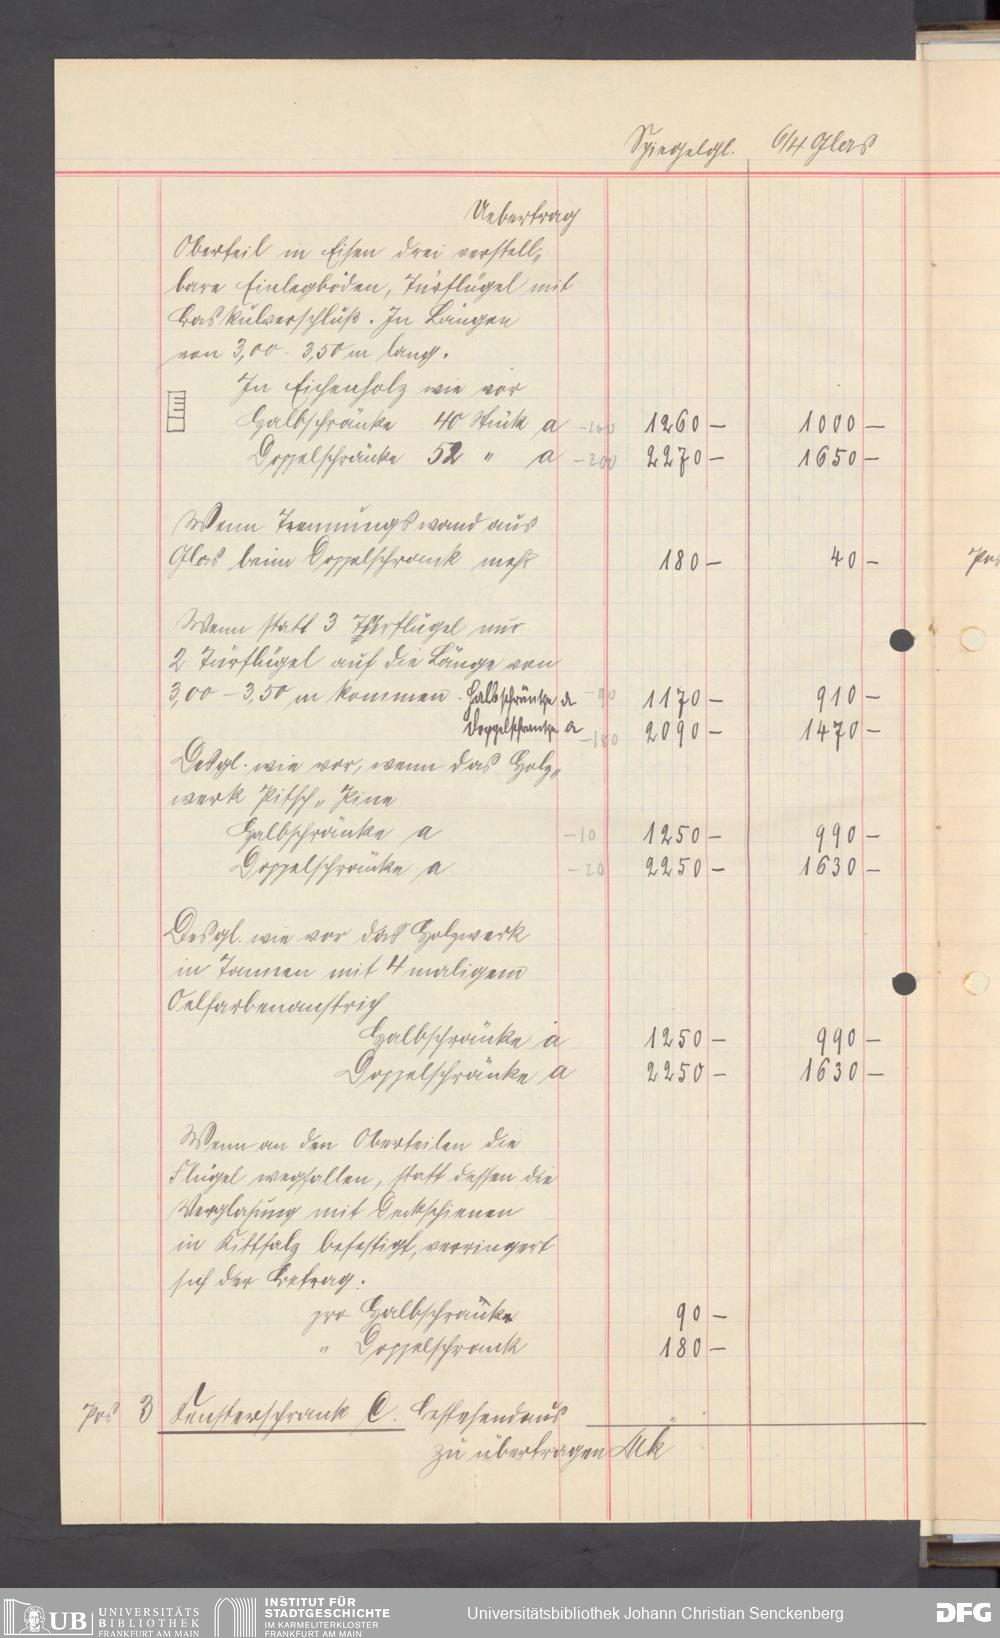 Spiegelgl. 6/4 Glas
Uebertrag
Oberteil in Eisen drei verstell„
bare Einlegböden, Türflügel mit
Baskülverschluß. In Längen
von 3,00 - 3,50 m lang.
In Eichenholz wie vor
Halbschränke 40 Stück a -100 1260 - 1000 -
Doppelschränke 52 " a -200 2270 - 1650 -
Wenn Trennungswand aus
Glas beim Doppelschrank mehr 180 - 40 -
Pos
Wenn statt 3 Türflügel nur
2 Türflügel auf die Länge von
3,00 - 3,50 m kommen. Halbschränke a -90 1170 - 910 -
Doppelschranke a -180 2090 - 1470 -
Desgl. wie vor, wenn das Holz„
werk Pitsch„ Pine
Halbschränke a -10 1250 - 990 -
Doppelschränke a -20 2250 - 1630 -
Desgl. wie vor das Holzwerk
in Tannen mit 4 maligem
Oelfarbenanstrich
Halbschränke a 1250 - 990 -
Doppelschränke a 2250 - 1630 -
Wenn an den Oberteilen die
Flügel wegfallen, statt dessen die
Verglasung mit Deckschienen
in Kittfalz befestigt, verringert
sich der Betrag:
pro Halbschrank 90 -
" Doppelschrank 180 -
Pos 3 Fensterschrank C. bestehend aus
zu übertragen Mk
UB UNIVERSITÄTS
BIBLIOTHEK
FRANKFURT AM MAIN
INSTITUT FÜR
STADTGESCHICHTE
IM KARMELITERKLOSTER
FRANKFURT AM MAIN
Universitätsbibliothek Johann Christian Senckenberg
DFG